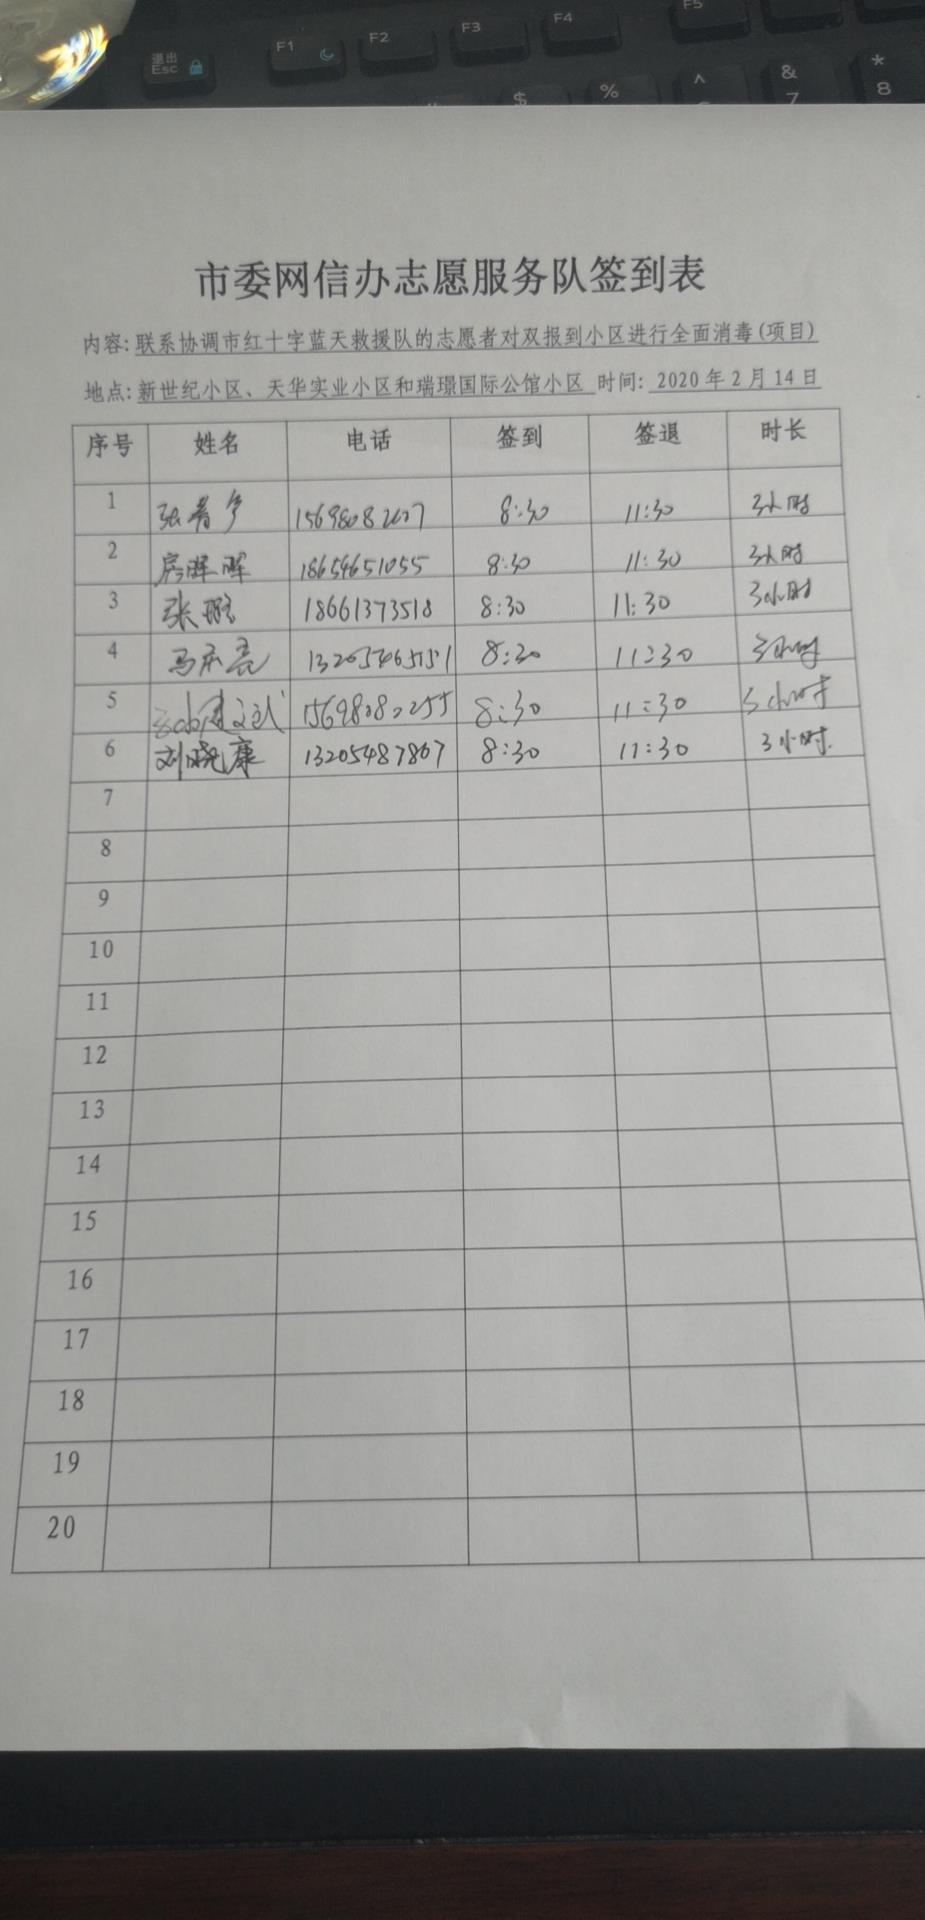 退出
Esc F1 F2 F3 F4 F5
$ % ^ & 7 * 8
市委网信办志愿服务队签到表
内容:联系协调市红十字蓝天救援队的志愿者对双报到小区进行全面消毒(项目)
地点:新世纪小区、天华实业小区和瑞璟国际公馆小区 时间: 2020年2月14日
序号 姓名 电话 签到 签退 时长
1 8:30 11:30 3小时
2 房晖晖 18654651055 8:30 11:30 3小时
3 18661373518 8:30 11:30 3小时
4 13205465151 8:30 11:30 3小时
5 15698082255 8:30 11:30 3小时
6 刘晓康 13205487867 8:30 11:30 3小时.
7
8
9
10
11
12
13
14
15
16
17
18
19
20